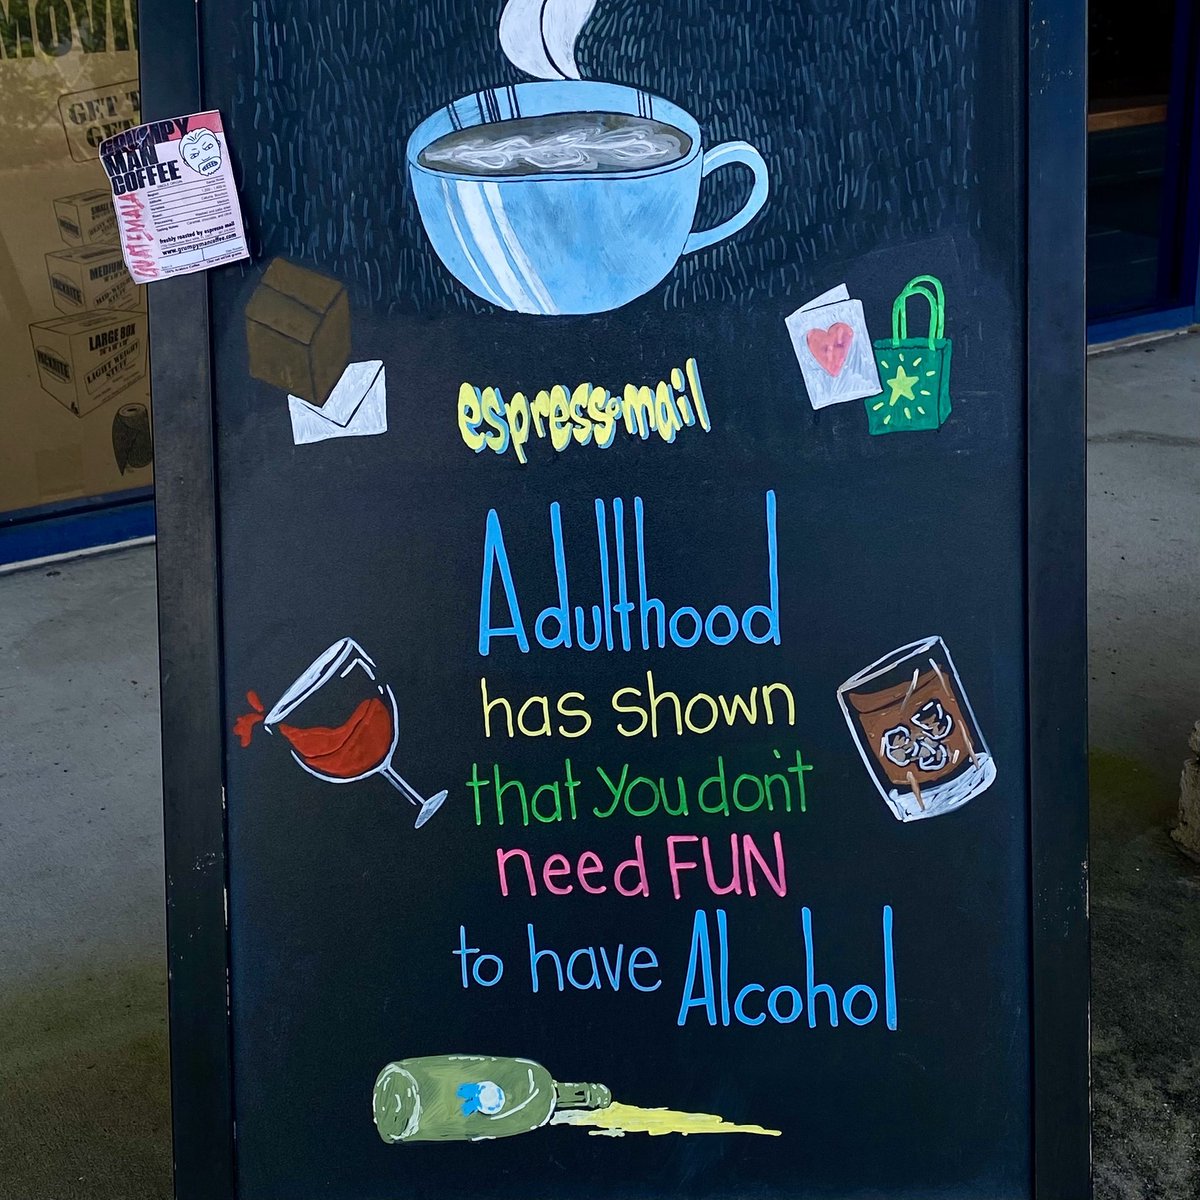 GRUMPY
MAN
COFFEE
GUATEMALA
freshly roasted by espresso mail
www.grumpymancoffee.com
SMALL BOX
MEDIUM
LARGE BOX
LIGHT WEIGHT
STUFF
espresso mail
Adulthood
has shown
that you don't
need FUN
to have Alcohol